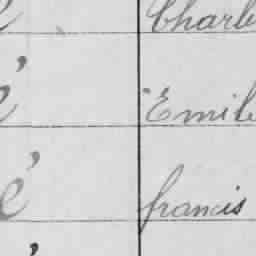 é Charle
é Emile
é francis